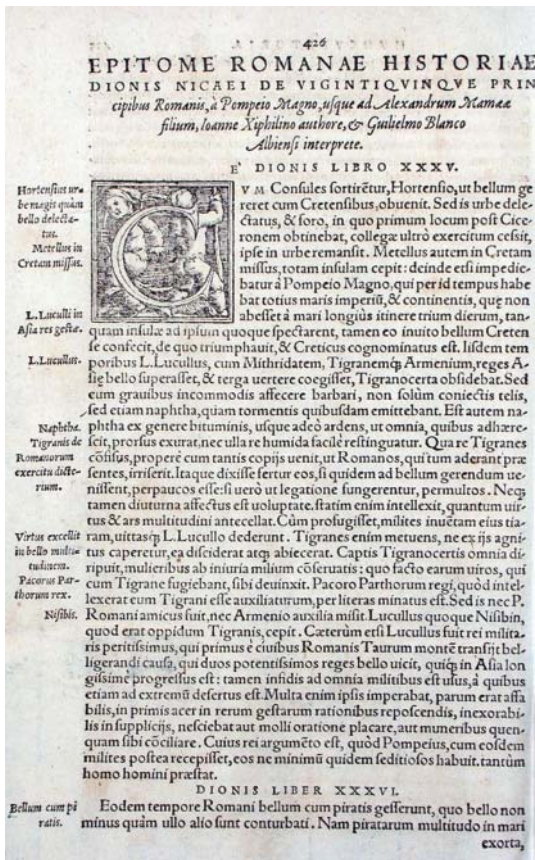 426
EPITOME ROMANAE HISTORIAE
DIONIS NICAEI DE VIGINTIQVINQVE PRIN
cipibus Romanis, à Pompeio Magno, usque ad Alexandrum Mamææ
filium, Ioanne Xiphilino authore, & Guilielmo Blanco
Albiensi interprete.
E' DIONIS LIBRO XXXV.
CVM Consules sortirētur, Hortensio, ut bellum ge
reret cum Cretensibus, obuenit. Sed is urbe dele-
ctatus, & foro, in quo primum locum post Cice
ronem obtinebat, collegæ ultrò exercitum cessit,
ipse in urbe remansit. Metellus autem in Cretam
missus, totam insulam cepit: deinde etsi impedie-
batur à Pompeio Magno, qui per id tempus habe
bat totius maris imperiū, & continentis, quę non
abesset à mari longiùs itinere trium dierum, tan-
quam insulæ ad ipsum quoque spectarent, tamen eo inuito bellum Creten
se confecit, de quo triumphauit, & Creticus cognominatus est. Iisdem tem
poribus L. Lucullus, cum Mithridatem, Tigranemq́; Armenium, reges A-
się bello superasset, & terga uertere coegisset, Tigranocerta obsidebat. Sed
eum grauibus incommodis affecere barbari, non solùm coniectis telis,
sed etiam naphtha, quam tormentis quibusdam emittebant. Est autem na-
phtha ex genere bituminis, usque adeò ardens, ut omnia, quibus adhære-
scit, prorsus exurat, nec ulla re humida facilè restinguatur. Qua re Tigranes
cōfisus, properè cum tantis copijs uenit, ut Romanos, qui tum aderant præ
sentes, irriserit. Itaque dixisse fertur eos, si quidem ad bellum gerendum ue-
nissent, perpaucos esse: si uerò ut legatione fungerentur, permultos. Neq;
tamen diuturna affectus est uoluptate. statim enim intellexit, quantum uir-
tus & ars multitudini antecellat. Cùm profugisset, milites inuētam eius tia-
ram, uittasq́; L. Lucullo dederunt. Tigranes enim metuens, ne ex ijs agni-
tus caperetur, ea disciderat atq; abiecerat. Captis Tigranocertis omnia di-
ripuit, mulieribus ab iniuria militum cōseruatis: quo facto earum uiros, qui
cum Tigrane fugiebant, sibi deuinxit. Pacoro Parthorum regi, quòd intel-
lexerat eum Tigrani esse auxiliaturum, per literas minatus est. Sed is nec P.
Romani amicus fuit, nec Armenio auxilia misit. Lucullus quoque Nisibin,
quod erat oppidum Tigranis, cepit. Cæterùm etsi Lucullus fuit rei milita
ris peritissimus, qui primus è ciuibus Romanis Taurum montē transijt bel-
ligerandi causa, qui duos potentissimos reges bello uicit, quiq́; in Asia lon
gissimè progressus est: tamen insidis ad omnia militibus est usus, à quibus
etiam ad extremū desertus est. Multa enim ipsis imperabat, parum erat affa
bilis, in primis acer in rerum gestarum rationibus reposcendis, inexorabi-
lis in supplicijs, nesciebat aut molli oratione placare, aut muneribus quen-
quam sibi cōciliare. Cuius rei argumēto est, quòd Pompeius, cum eosdem
milites postea recepisset, eos ne minimū quidem seditiosos habuit. tantùm
homo homini præstat.
DIONIS LIBER XXXVI.
Eodem tempore Romani bellum cum piratis gesserunt, quo bello non
minus quàm ullo alio sunt conturbati. Nam piratarum multitudo in mari
exorta,
Hortensius ur
be magis quàm
bello delecta-
tus.
Metellus in
Cretam missus.
L. Luculli in
Asia res gestæ.
L. Lucullus.
Naphtha.
Tigranis de
Romanorum
exercitu dicte-
rium.
Virtus excellit
in bello multi-
tudinem.
Pacorus Par-
thorum rex.
Nisibis.
Bellum cum pi
ratis.